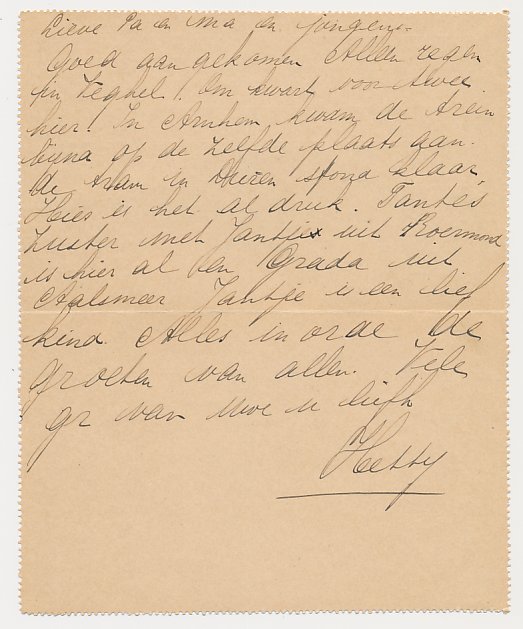 Lieve Pa en Ma en jongens.
Goed aangekomen Alleen regen
in Veghel! Om kwart voor twee
hier! In Arnhem, kwam de trein
bijna op de zelfde plaats aan.
de tram in Dieren stond klaar,
Hier is het al druk. Tante's
zuster met Jantje uit Roermond
is hier al en Grada uit
Aalsmeer Jantje is een lief
kind. Alles in orde de
groeten van allen. Vele
gr van uwe u liefh
Hetty